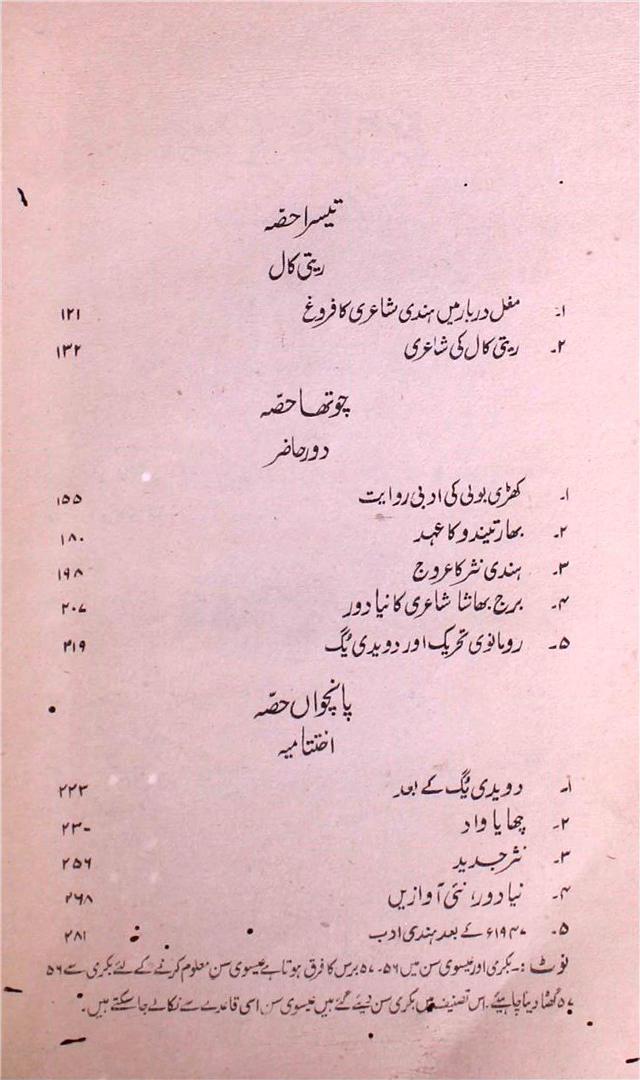 تیسرا حصّہ
ریتی کال
۱۔ مغل دربار میں ہندی شاعری کا فروغ ۱۲۱
۲۔ ریتی کال کی شاعری ۱۳۲
چوتھا حصّہ
دور حاضر
۱۔ کھڑی بولی کی ادبی روایت ۱۵۵
۲۔ بھارتیندو کا عہد ۱۸۰
۳۔ ہندی نثر کا عروج ۱۹۸
۴۔ برج بھاشا شاعری کا نیا دور ۲۰۷
۵۔ رومانوی تحریک اور دویدی یُگ ۲۱۹
پانچواں حصّہ
اختتامیہ
۱۔ دویدی یُگ کے بعد ۲۲۳
۲۔ چھایا واد ۲۳۰
۳۔ نثر جدید ۲۵۶
۴۔ نیا دور، نئی آوازیں ۲۶۸
۵۔ ۱۹۴۷ء کے بعد ہندی ادب ۲۸۱
نوٹ :۔ بکری اور عیسوی سن میں ۵۶۔۵۷ برس کا فرق ہوتا ہے عیسوی سن معلوم کرنے کے لئے بکری سے ۵۶
۵۷ گھٹا دینا چاہیئے۔ اس تصنیف میں بکری سن دیئے گئے ہیں عیسوی سن اسی قاعدے سے نکالے جا سکتے ہیں۔